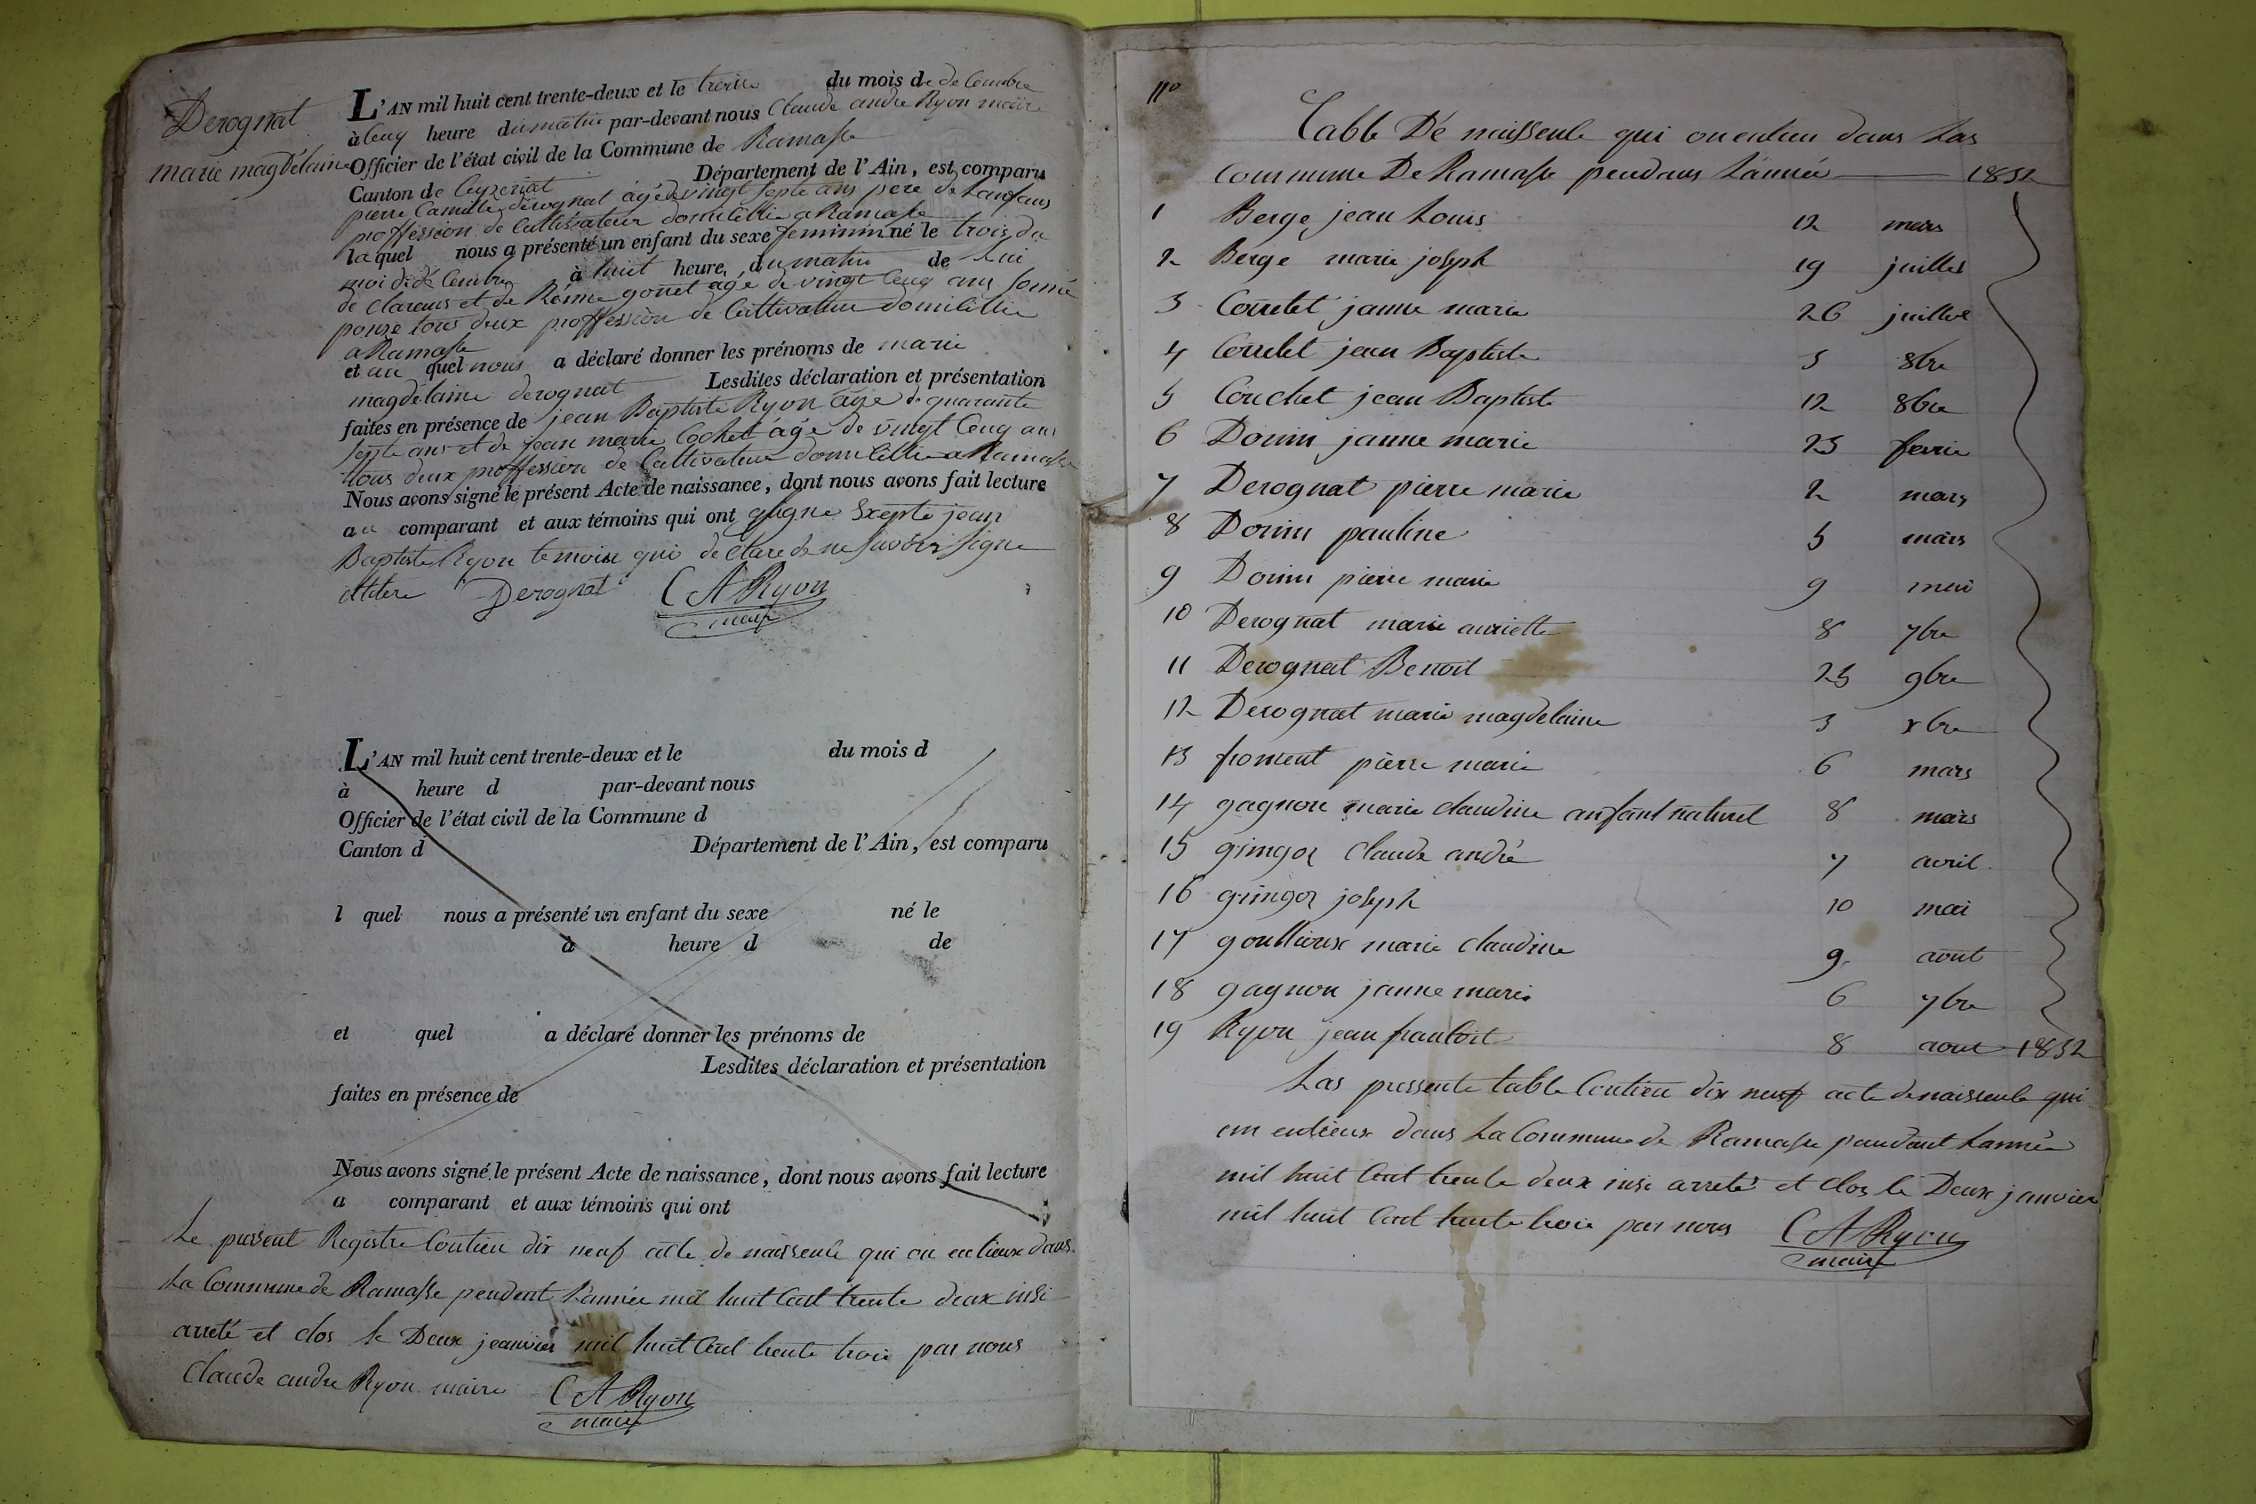 Derognat
marie magdélaine
L'AN mil huit cent trente-deux et le troiss du mois de decembre
à cenq heure du matin par-devant nous Claude andre Ryon maire
Officier de l'état civil de la Commune de Ramasse
Canton de Ceyzeriat Département de l'Ain, est comparu
pierre Camille dérognat âgé de vingt septe ans pere de lanfans
proffession de Cultivateur domicillie a Ramasse
la quel nous a présenté un enfant du sexe feminin né le trois du
moi de décembre à huit heure du matin de Lui
de clareus et de gonet age de vingt cenq ans
tous deux proffession de Cultivateur domicillie
a Ramasse
et au quel nous a déclaré donner les prénoms de marie
magdélaine derognat Lesdites déclaration et présentation
faites en présence de jean Baptiste Ryon age de quarante
septe ans et de jean marie Cochet âgé de vingt Cenq ans
tous deux proffession de Cultivateur domicillie a Ramasse
Nous avons signé le présent Acte de naissance, dont nous avons fait lecture
au comparant et aux témoins qui ont signe Exepte jean
Baptiste Ryon temoin qui declare de ne savoir signe
Derognat C A Ryon
maire
L'AN mil huit cent trente-deux et le du mois d
à heure d par-devant nous
Officier de l'état civil de la Commune d
Canton d Département de l'Ain, est comparu
l quel nous a présenté un enfant du sexe né le
à heure d de
et quel a déclaré donner les prénoms de
Lesdites déclaration et présentation
faites en présence de
Nous avons signé le présent Acte de naissance, dont nous avons fait lecture
a comparant et aux témoins qui ont
Le present Registre Contien dix neuf acte de naissence qui on enlieux dans
La Commune de Ramasse pendent L'année mil huit Cent trente deux insi
arreté et clos le Deux jeanvier mil huit Cent trente trois par nous
Claude andre Ryon maire C A Ryon
maire
Table Dé naissence qui on enlieu dans Las
commune De Ramasse pendans L'année 1832
1 Berge jean Louis 12 mars
2 Berge marie joseph 19 juillet
3 Corrclet janne marie 26 juillet
4 Corrclet jean Baptiste 3 8bre
5 Couchet jean Baptiste 12 8bre
6 Donin janne marie 23 fevrie
7 Derognat pierre marie 2 mars
8 Donin pauline 5 mars
9 Donin pierre marie 9 mai
10 Derognat marie anriette 8 7bre
11 Derognat Benoit 25 9bre
12 Derognat marie magdelaine 3 xbre
13 froment pierre marie 6 mars
14 gagnon marie claudine anfant naturel 8 mars
15 gringoz claude andré 7 avril
16 gringoz joseph 10 mai
17 goullioux marie claudine 9 aout
18 gagnon janne marie 6 7bre
19 Ryon jean francois 8 aout 1832
Las pressente table Contien dix neuf acte de naissence qui
on enlieux dans La Commune de Ramasse pandant Lannée
mil huit Cent trente deux insi arreté et clos le Deux janvier
mil huit Cent trente trois par nous C A Ryon
maire